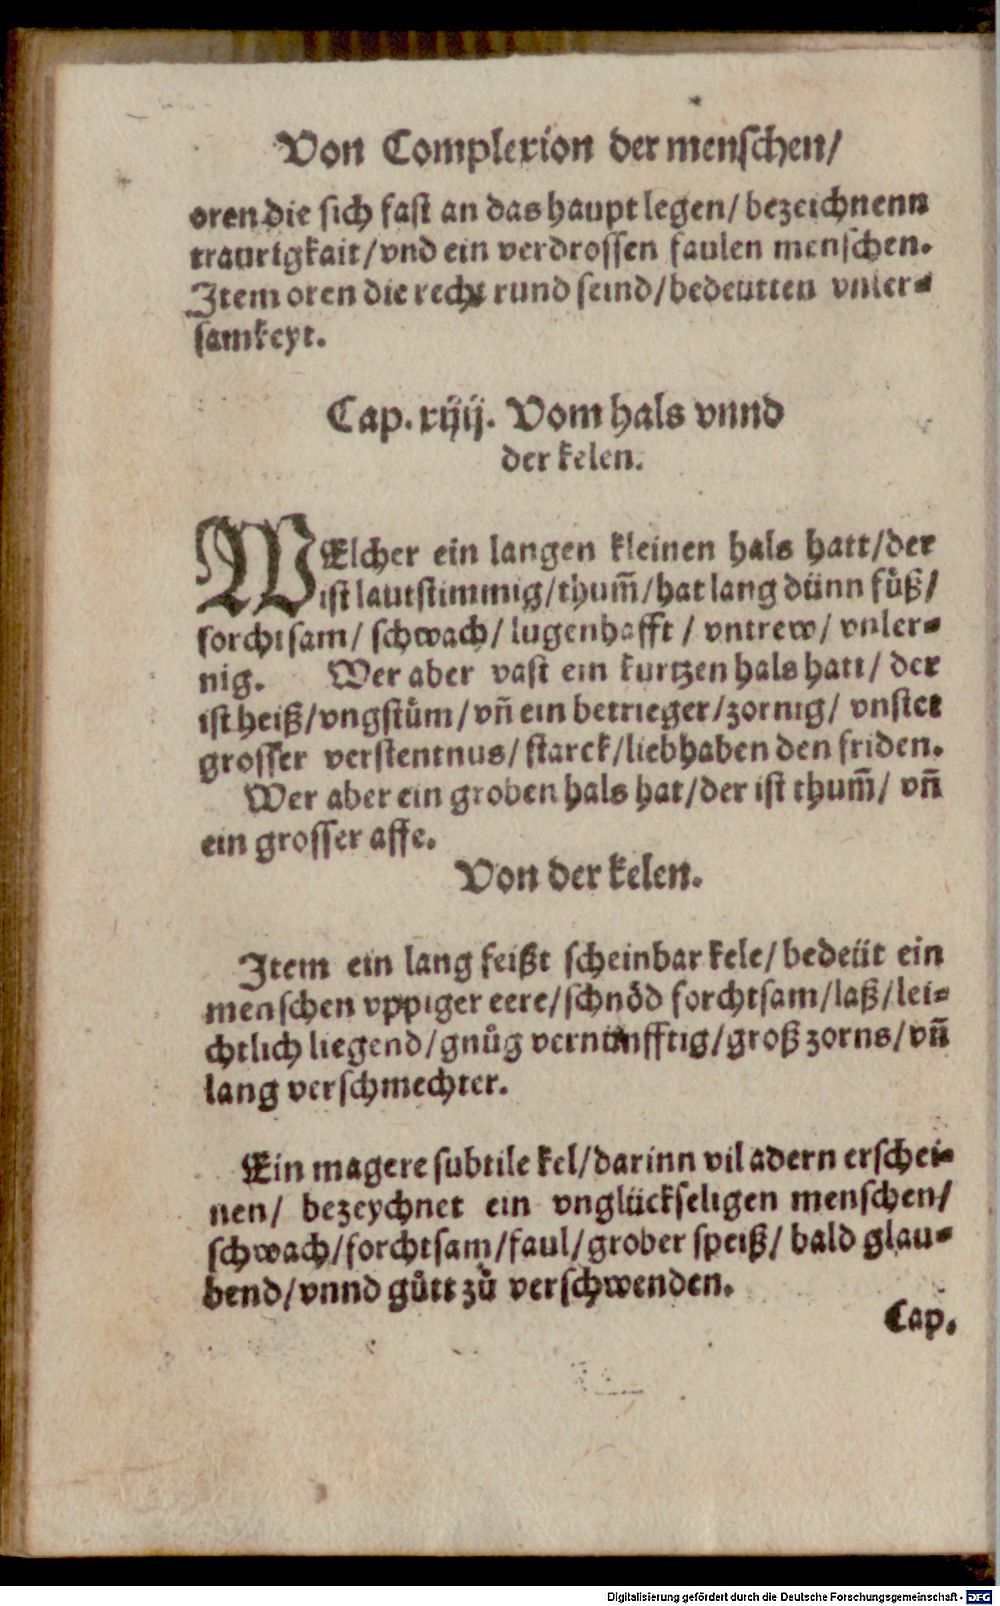 Von Complexion der menschen/
oren die sich fast an das haupt legen/ bezeichnenn
traurigkait/ vnd ein verdrossen faulen menschen.
Item oren die recht rund seind/ bedeutten vnler-
samkeyt.
Cap. xiiij. Vom hals vnnd
der kelen.
WElcher ein langen kleinen hals hatt/ der
ist lautstimmig/ thum̃/ hat lang dünn fůß/
forchtsam/ schwach/ lugenhafft / vntrew/ vnler-
nig. Wer aber vast ein kurtzen hals hatt/ der
ist heiß/ vngstüm/ vñ ein betrieger/ zornig/ vnstet
grosser verstentnus/ starck/ liebhaben den friden.
Wer aber ein groben hals hat/ der ist thum̃/ vñ
ein grosser affe.
Von der kelen.
Item ein lang feißt scheinbar kele/ bedeüt ein
menschen vppiger eere/ schnöd forchtsam/ laß/ lei-
chtlich liegend/ gnůg vernünfftig/ groß zorns/ vñ
lang verschmechter.
Ein magere subtile kel/ darinn vil adern erschei-
nen/ bezeychnet ein vnglückseligen menschen/
schwach/ forchtsam/ faul/ grober speiß/ bald glau-
bend/ vnnd gůtt zů verschwenden.
Cap.
Digitalisierung gefördert durch die Deutsche Forschungsgemeinschaft - DFG